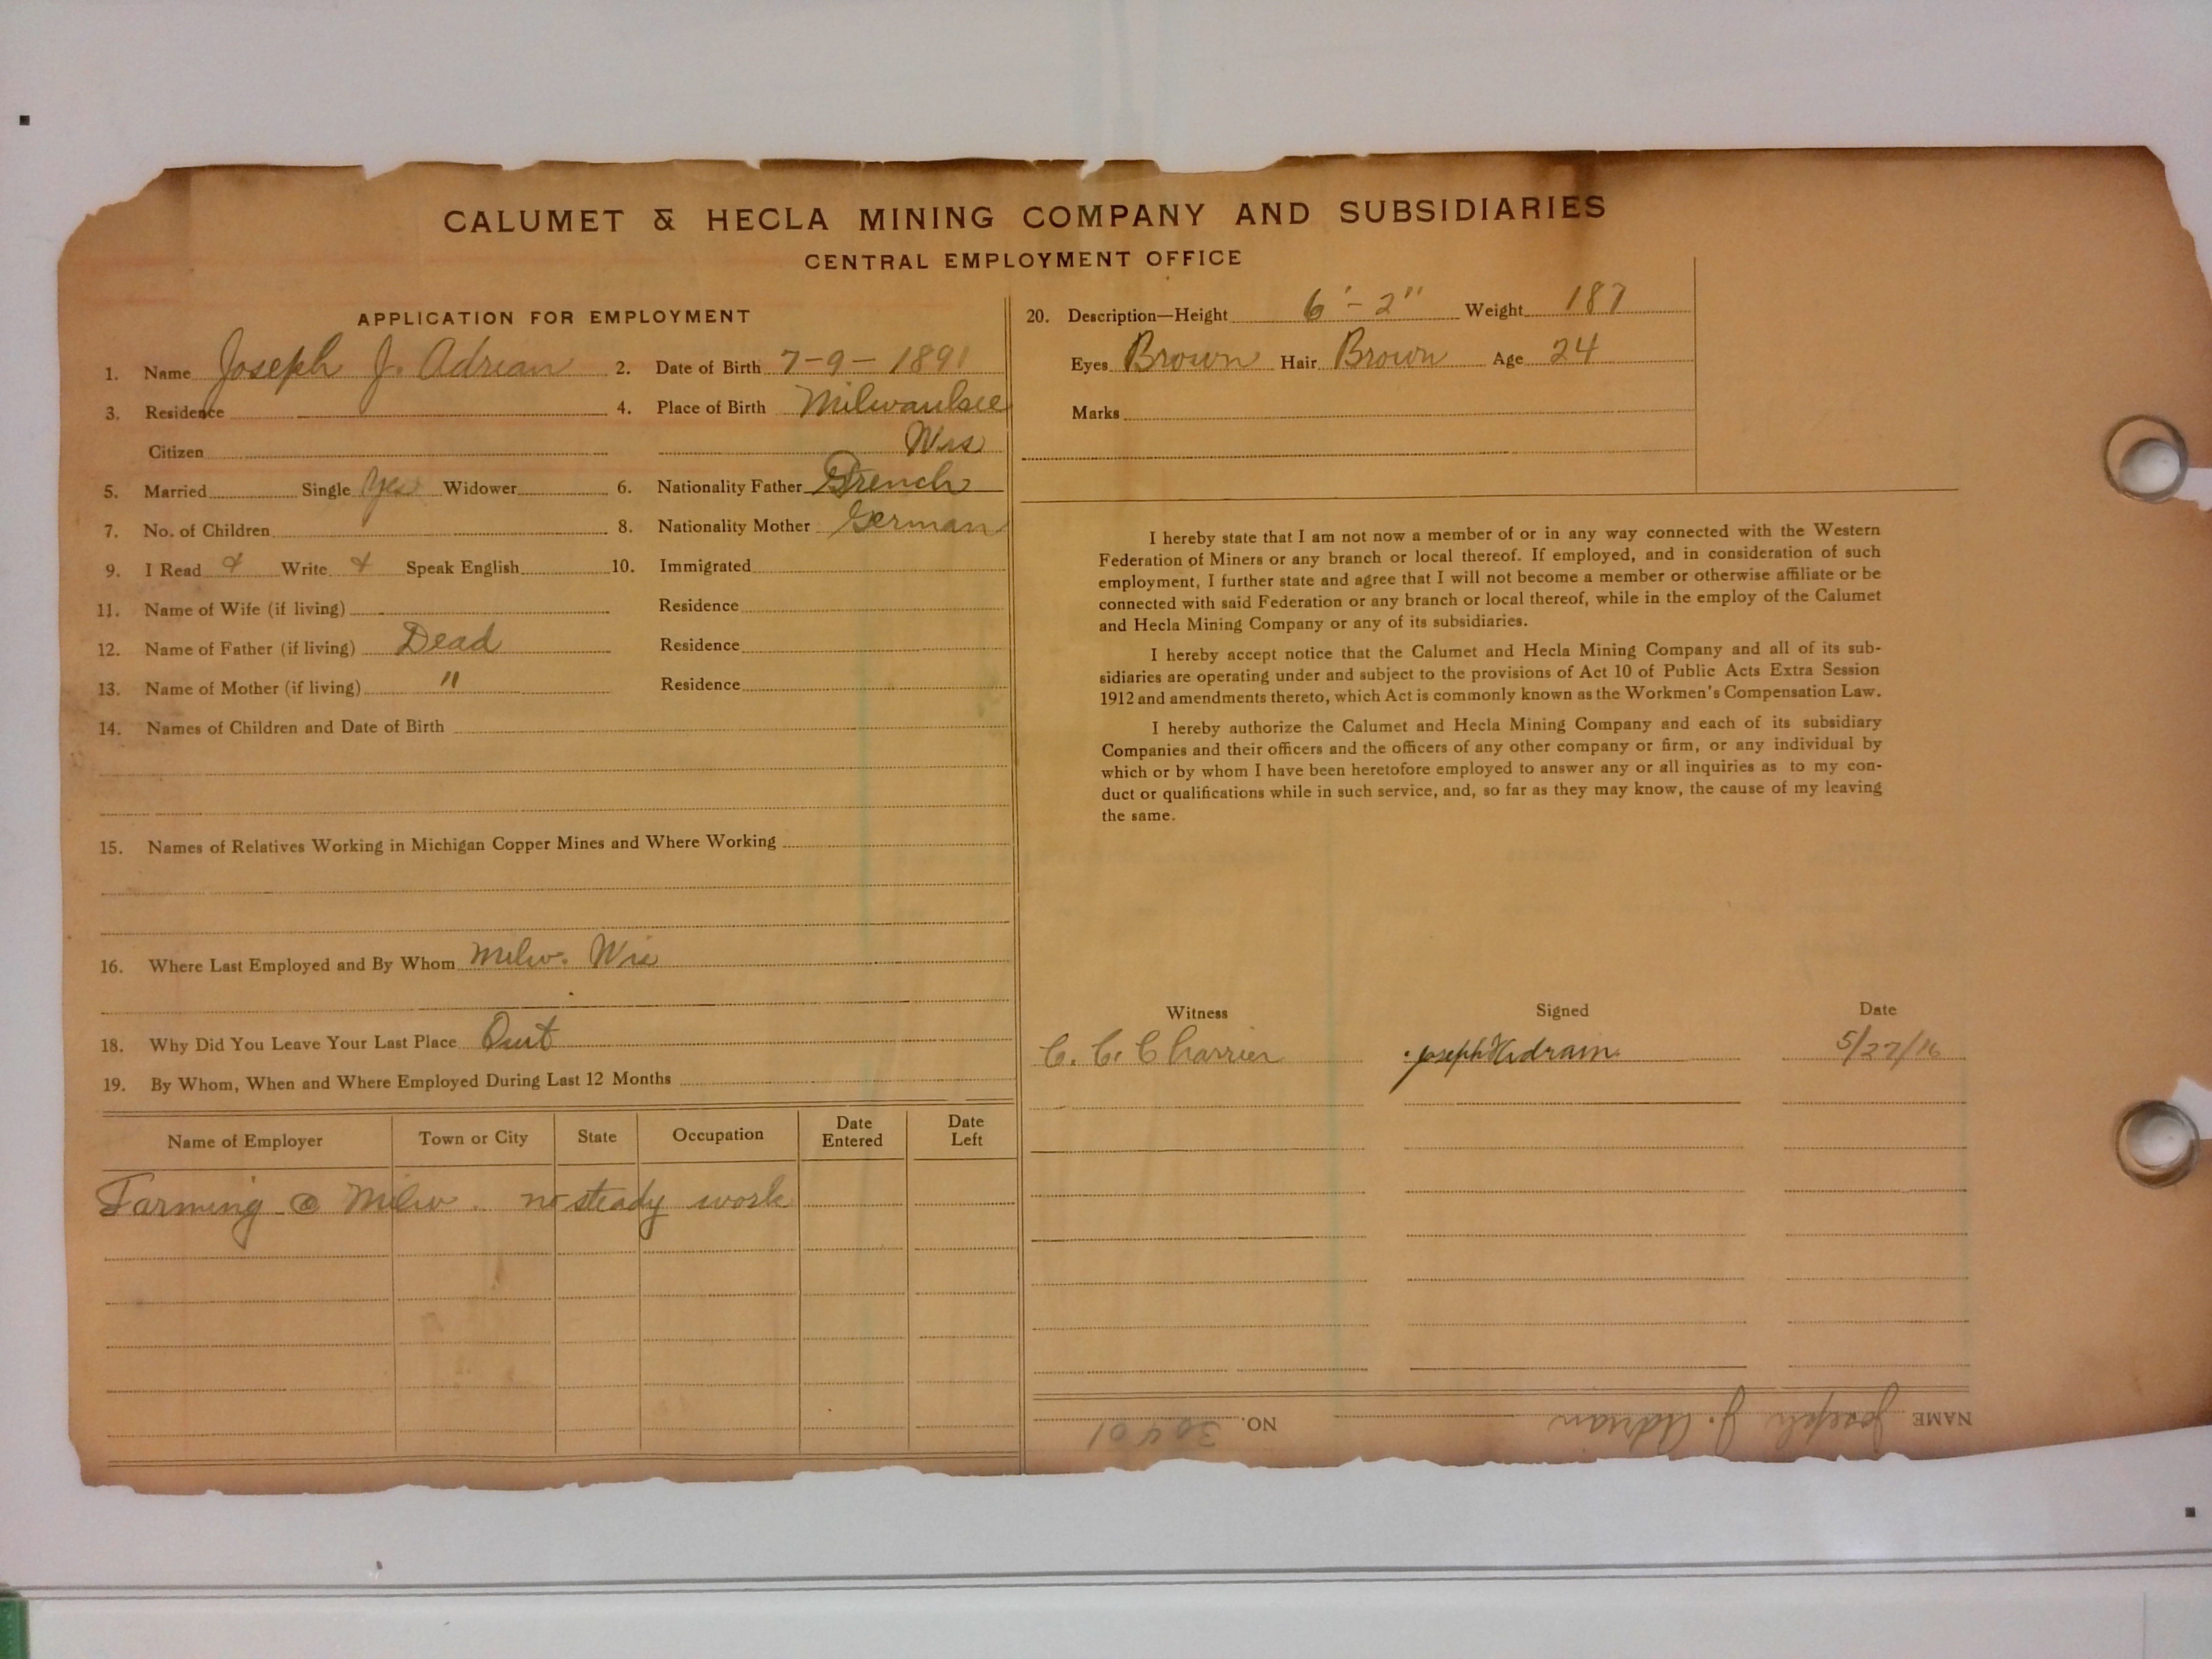 CALUMET & HECLA MINING COMPANY AND SUBSIDIARIES
CENTRAL EMPLOYMENT OFFICE
APPLICATION FOR EMPLOYMENT
1. Name Joseph J. Adrian 2. Date of Birth 7-9-1891
3. Residence 4. Place of Birth Milwaukee
Citizen Wis
5. Married Single Yes Widower 6. Nationality Father French
7. No. of Children 8. Nationality Mother German
9. I Read Write Speak English 10. Immigrated
11. Name of Wife (if living) Residence
12. Name of Father (if living) Dead Residence
13. Name of Mother (if living) " Residence
14. Names of Children and Date of Birth
15. Names of Relatives Working in Michigan Copper Mines and Where Working
16. Where Last Employed and By Whom Milw. Wis
18. Why Did You Leave Your Last Place Quit
19. By Whom, When and Where Employed During Last 12 Months
Name of Employer Town or City State Occupation Date Entered Date Left
Farming @ Milw. no steady work
20. Description—Height 6'-2" Weight 187
Eyes Brown Hair Brown Age 24
Marks
I hereby state that I am not now a member of or in any way connected with the Western
Federation of Miners or any branch or local thereof. If employed, and in consideration of such
employment, I further state and agree that I will not become a member or otherwise affiliate or be
connected with said Federation or any branch or local thereof, while in the employ of the Calumet
and Hecla Mining Company or any of its subsidiaries.
I hereby accept notice that the Calumet and Hecla Mining Company and all of its sub-
sidiaries are operating under and subject to the provisions of Act 10 of Public Acts Extra Session
1912 and amendments thereto, which Act is commonly known as the Workmen's Compensation Law.
I hereby authorize the Calumet and Hecla Mining Company and each of its subsidiary
Companies and their officers and the officers of any other company or firm, or any individual by
which or by whom I have been heretofore employed to answer any or all inquiries as to my con-
duct or qualifications while in such service, and, so far as they may know, the cause of my leaving
the same.
Witness Signed Date
C. C. Charrier Joseph J Adrain 5/27/16
NAME Joseph J. Adrian NO. 30401